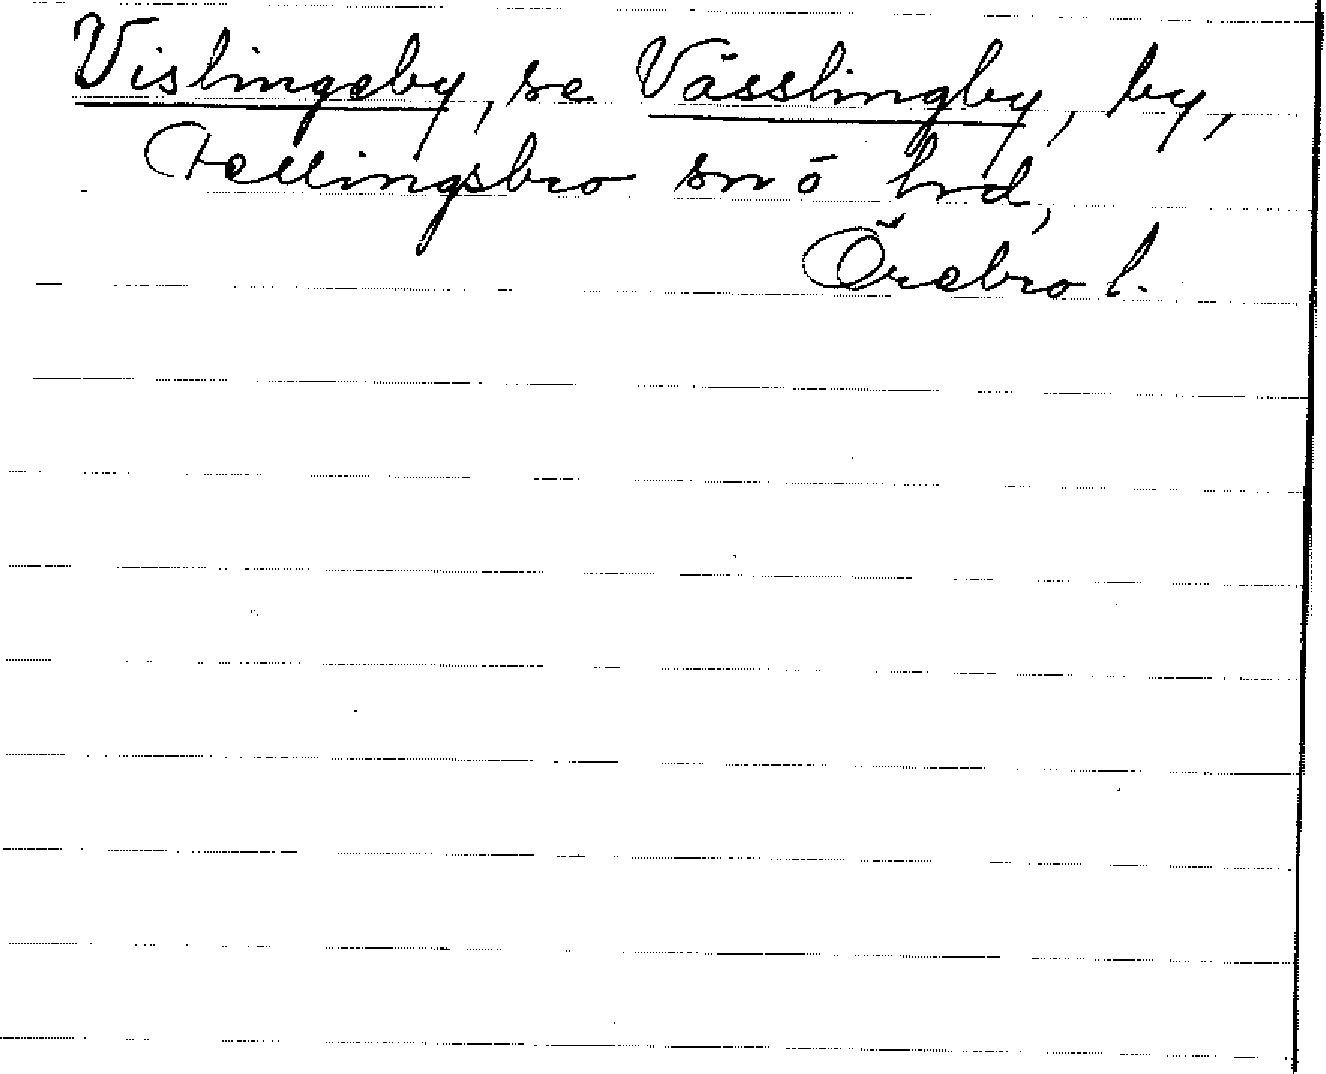 Vislingeby, se Vässlingby, by,
Fellingsbro sn o hrd,
Örebro l.